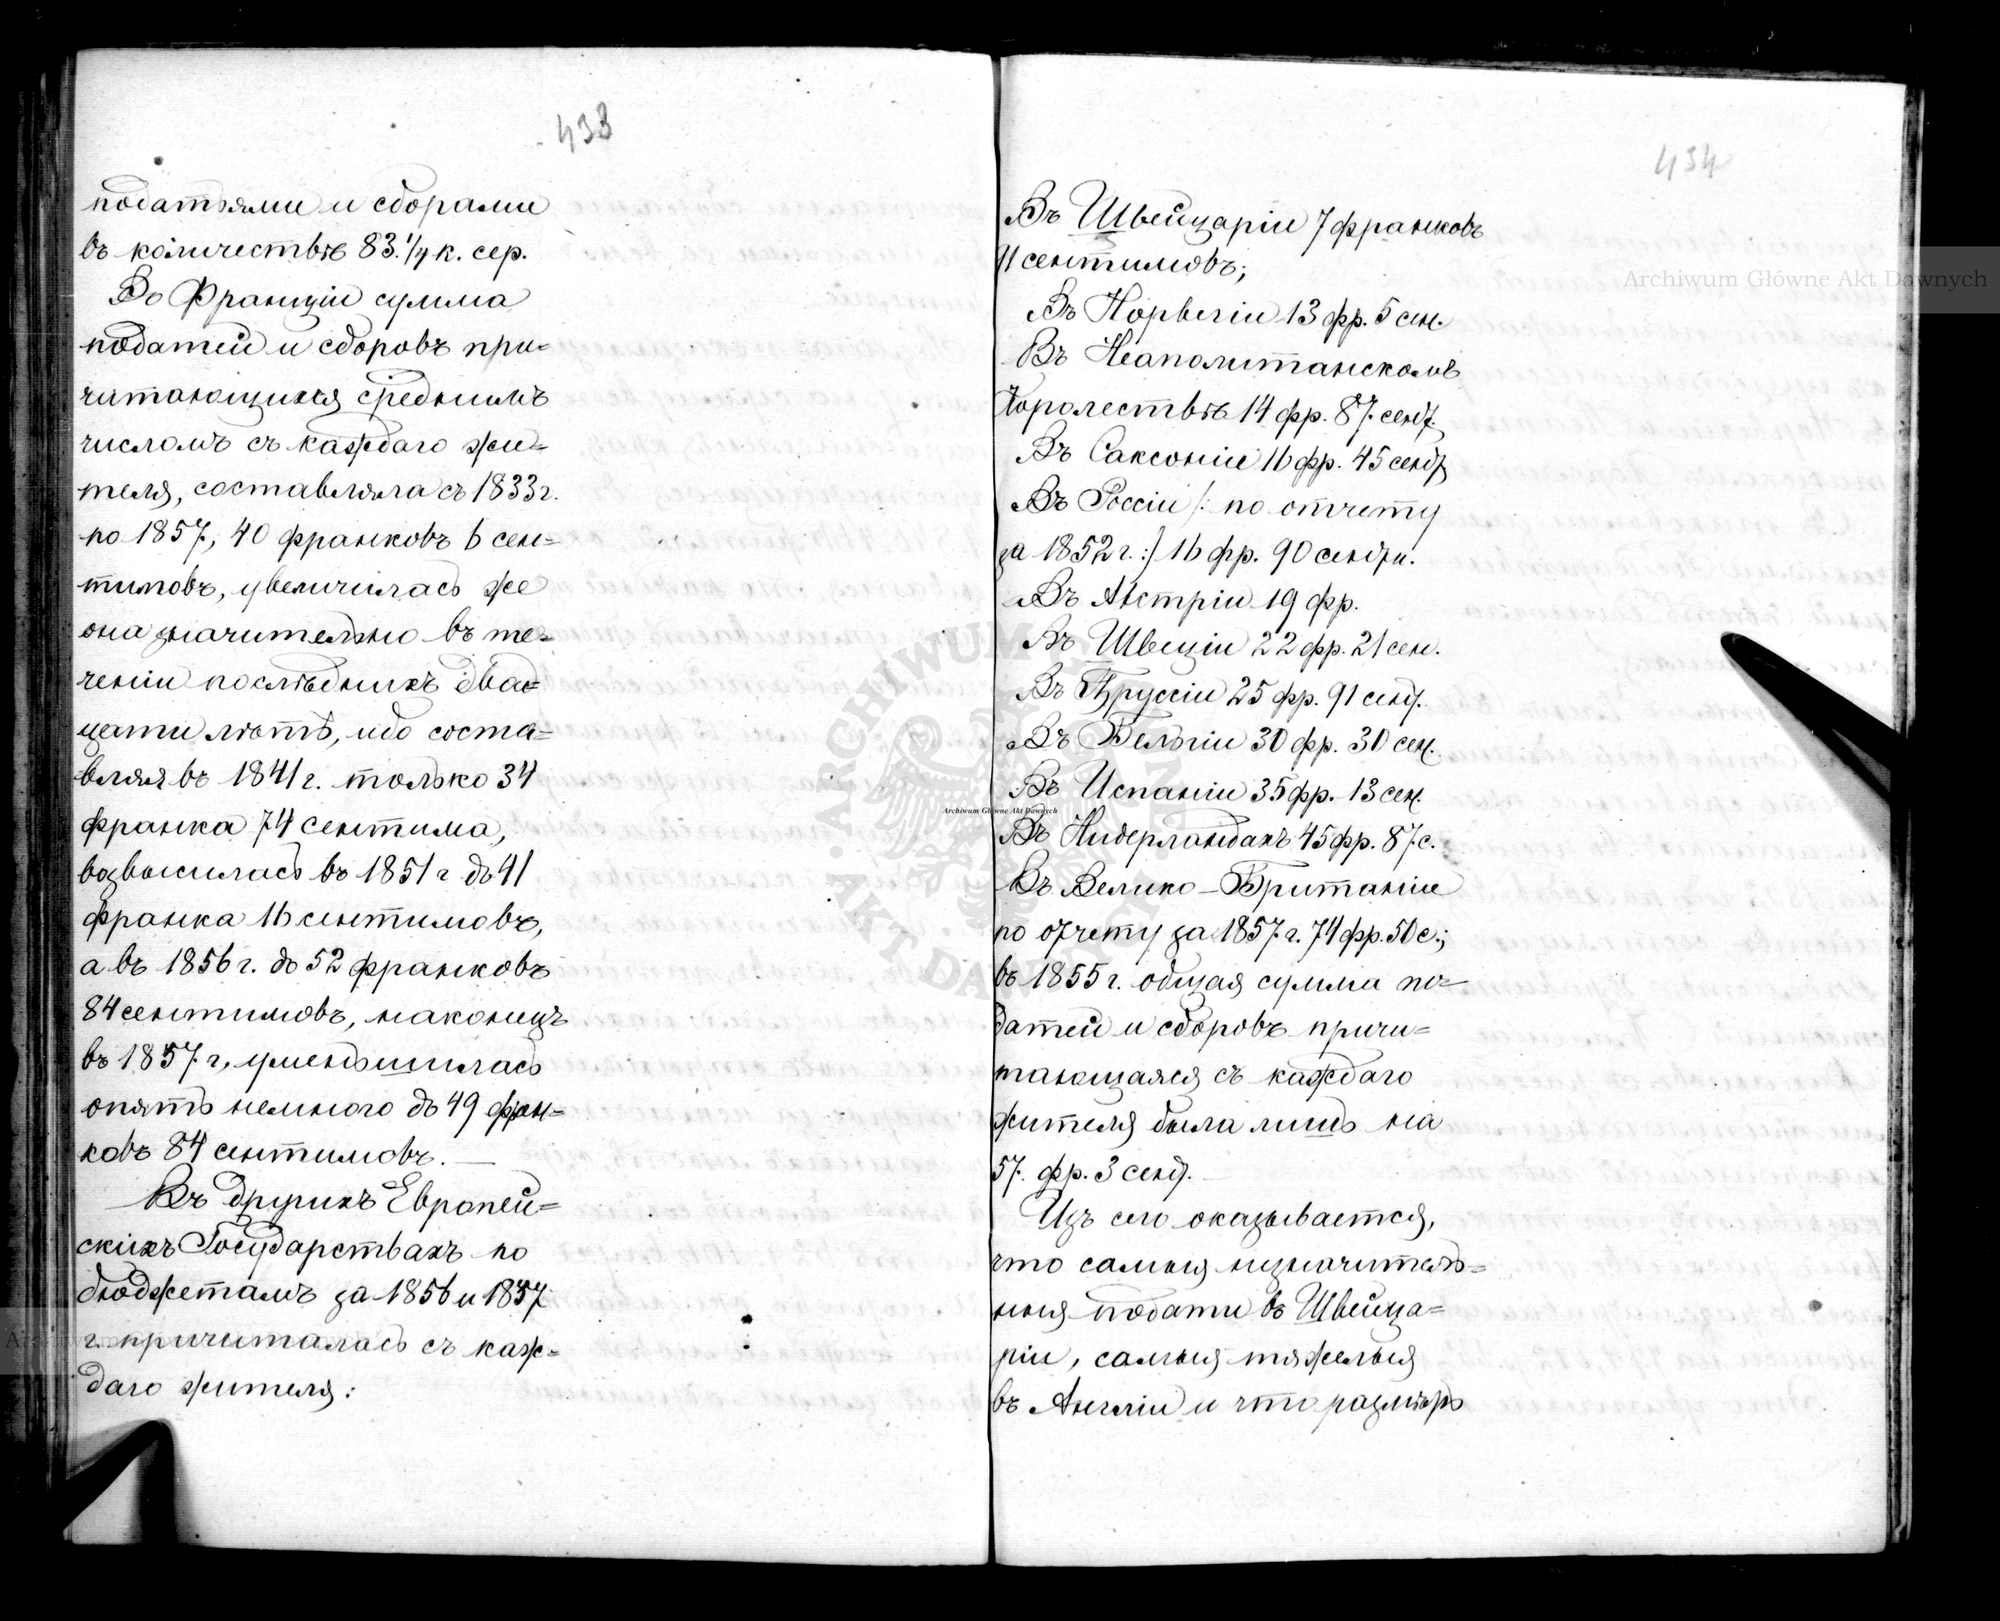 433
податьями и сборами
въ количествѣ 83.1/4 к. сер.
Во Франціи сумма
податей и сборовъ при=
читающихся среднимъ
числомъ съ каждаго жи=
теля, составляла съ 1833 г.
по 1857, 40 франковъ 6 сен=
тимовъ, увеличилась же
она значительно въ те=
ченіи послѣднихъ два=
цати лѣтъ, ибо соста=
вляя въ 1841 г. только 34
франка 74 сентима,
возвысилась въ 1851 г. до 41
франка 16 сентимовъ,
а въ 1856 г. до 52 франковъ
84 сентимовъ, наконецъ
въ 1857 г, уменьшилась
опять немного до 49 фран=
ковъ 84 сентимовъ. —
Въ другихъ Европей=
скихъ Государствахъ по
бюджетамъ за 1856 и 1857
г. причиталось съ каж=
даго жителя:
434
Въ Швейцаріи 7 франковъ
11 сентимовъ;
Въ Норвегіи 13 фр. 5 сен.
Въ Неаполитанскомъ
Королествѣ 14 фр. 87 сент.
Въ Саксоніи 16 фр. 45 сент
Въ Россіи /: по отчету
за 1852 г. :/ 16 фр. 90 сенти.
Въ Австріи 19 фр.
Въ Швеціи 22 фр. 21 сен.
Въ Пруссіи 25 фр. 91 сент.
Въ Бельгіи 30 фр. 30 сен.
Въ Испаніи 35 фр. 13 сен.
Въ Нидерландахъ 45 фр. 87 с.
Въ Велико-Британіи
по отчету за 1857 г. 74 фр. 50 с.;
въ 1855 г. общая сумма по=
датей и сборовъ причи=
тающаяся съ каждаго
жителя была лишь на
57. фр. 3 сент.
Изъ сего оказывается,
что самыя незначитель=
ныя подати въ Швейца=
ріи, самыя тяжелыя
въ Англіи и что размѣръ
Archiwum Główne Akt Dawnych
Archiwum Główne Akt Dawnych